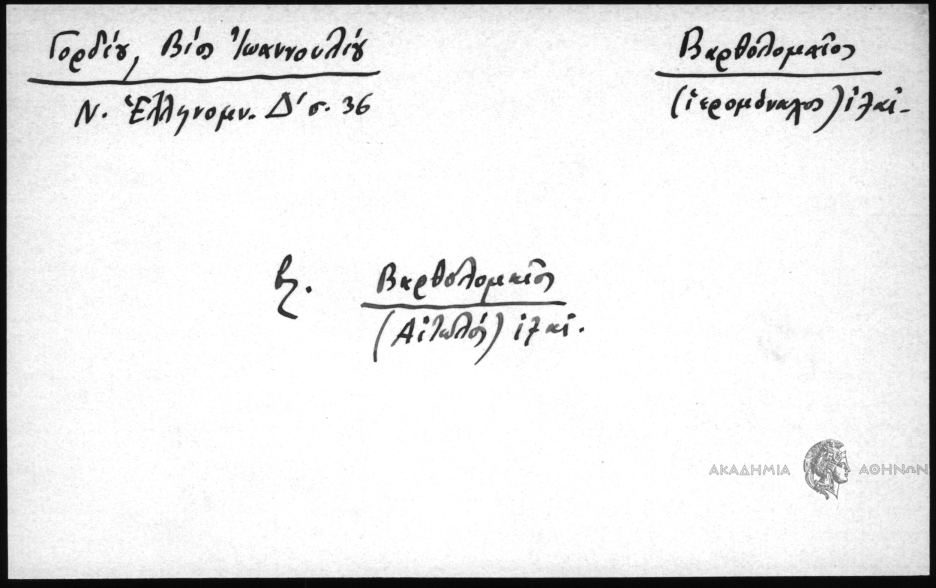 Γορδίου, Βίος Ἰωαννουλίου
Ν. Ἑλληνομν. Δ' σ. 36
Βαρθολομαῖος
(ἱερομόναχος) ιζ αἰ.
βλ. Βαρθολομαῖος
(Αἰτωλός) ιζ αἰ.
ΑΚΑΔΗΜΙΑ ΑΘΗΝΩΝ